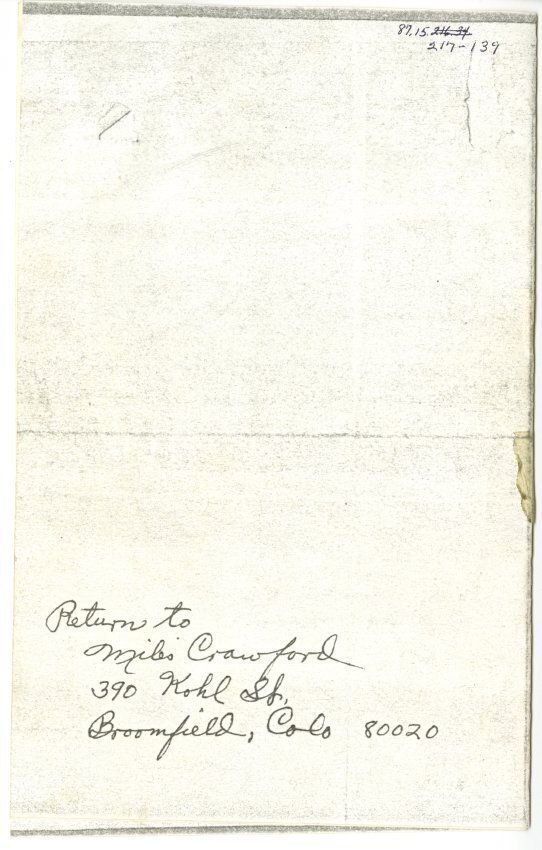 87.15.216.34
217-139
Return to
Miles Crawford
390 Kohl St.,
Broomfield, Colo 80020